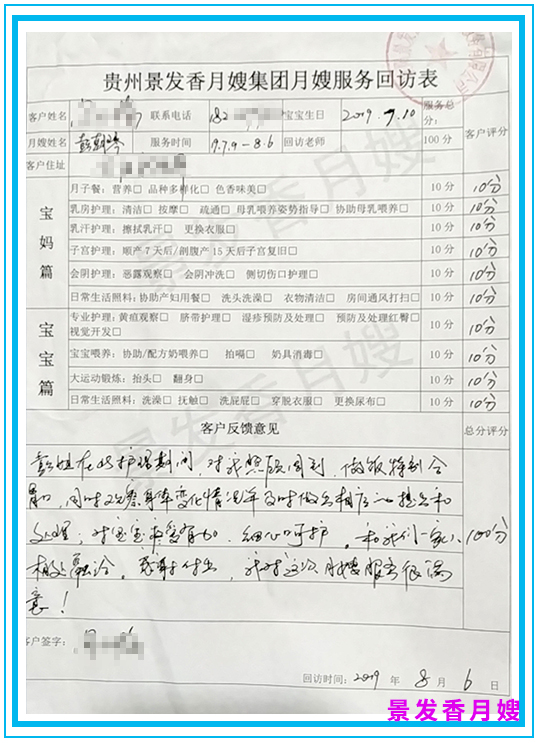 贵州景发香月嫂集团月嫂服务回访表
客户姓名 联系电话 182 宝宝生日 2019.7.10 服务总分: 客户评分
月嫂姓名 服务时间 9.7.9-8.6 回访老师 100分
客户住址
宝妈篇
月子餐:营养□ 品种多样化□ 色香味美□ 10分 10分
乳房护理:清洁□ 按摩□ 疏通□ 母乳喂养姿势指导□ 协助母乳喂养□ 10分 10分
乳汗护理:擦拭乳汗□ 更换衣服□ 10分 10分
子宫护理:顺产7天后/剖腹产15天后子宫复旧□ 10分 10分
会阴护理:恶露观察□ 会阴冲洗□ 侧切伤口护理□ 10分 10分
日常生活照料:协助产妇用餐□ 洗头洗澡□ 衣物清洁□ 房间通风打扫□ 10分 10分
宝宝篇
专业护理:黄疸观察□ 脐带护理□ 湿疹预防及处理□ 预防及处理红臀□
视觉开发□ 10分 10分
宝宝喂养:协助/配方奶喂养□ 拍嗝□ 奶具消毒□ 10分 10分
大运动锻炼:抬头□ 翻身□ 10分 10分
日常生活照料:洗澡□ 抚触□ 洗屁屁□ 穿脱衣服□ 更换尿布□ 10分 10分
客户反馈意见 总分评分
彭姐在护理期间,对我照顾周到,做饭特别合
胃口,同时观察身体变化情况并及时做出相应的提示和
处理,对宝宝关爱有加,细心呵护。和我们一家人
相处融洽。感谢付出,我对这次月嫂服务很满
意!
100分
客户签字:
回访时间:2019 年 8 月 6 日
景发香月嫂
景发香月嫂
景发香月嫂